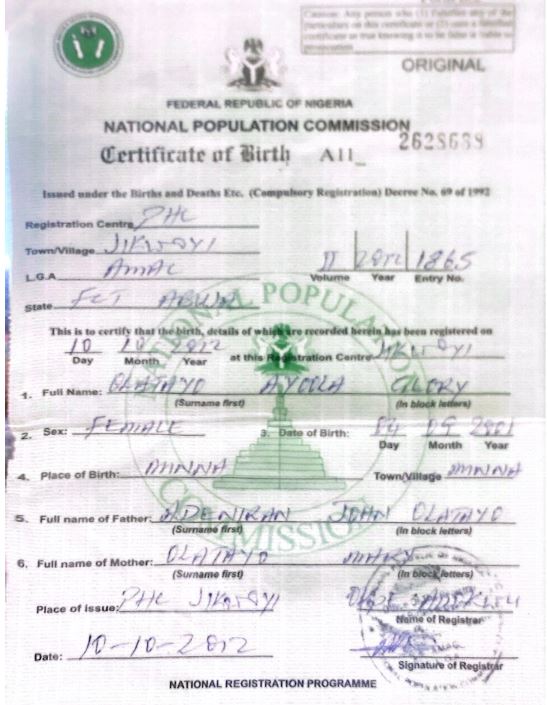 Caution: Any person who (1) falsifies any of the
particulars on this certificate or (2) uses a falsified
certificate as true knowing it to be false is liable to
prosecution
ORIGINAL
FEDERAL REPUBLIC OF NIGERIA
NATIONAL POPULATION COMMISSION
Certificate of Birth A11_ 2628638
Issued under the Births and Deaths Etc. (Compulsory Registration) Decree No. 69 of 1992
Registration Centre PHC
Town/Village JIKWOYI
L.G.A AMAC
II 2012 1865
Volume Year Entry No.
State FCT ABUJA
This is to certify that the birth, details of which are recorded herein has been registered on
10 10 2012 at this Registration Centre JIKWOYI
Day Month Year
1. Full Name: OLATAYO AYOOLA GLORY
(Surname first) (In block letters)
2. Sex: FEMALE 3. Date of Birth: 04 09 2001
Day Month Year
4. Place of Birth: MINNA Town/Village MINNA
5. Full name of Father: ADENIRAN JOHN OLATAYO
(Surname first) (In block letters)
6. Full name of Mother: OLATAYO MARY
(Surname first) (In block letters)
Place of issue: PHC JIKWOYI
Name of Registrar
Date: 10-10-2012
Signature of Registrar
NATIONAL REGISTRATION PROGRAMME
NATIONAL POPULATION COMMISSION